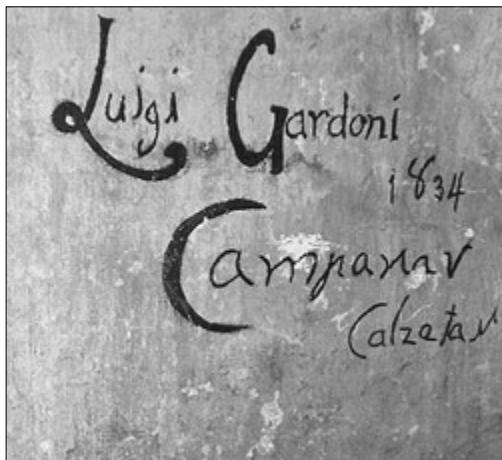 Luigi Gardoni
1834
Campanar
Calzetar